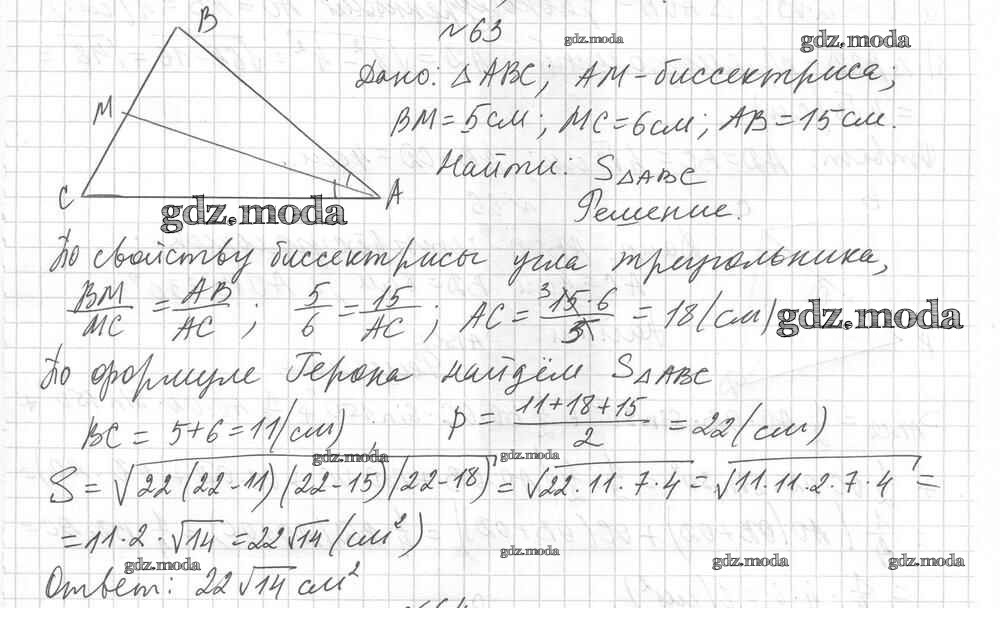 №63
gdz.moda
gdz.moda
B
M
C
A
Дано: △ABC; AM-биссектриса;
BM=5см; MC=6см; AB=15см.
Найти: S△ABC
gdz.moda
Решение.
По свойству биссектрисы угла треугольника,
BM/MC = AB/AC; 5/6 = 15/AC; AC = 15·6/5 = 18(см)
3
gdz.moda
По формуле Герона найдём S△ABC
BC = 5+6=11(см), p = (11+18+15)/2 = 22(см)
gdz.moda
gdz.moda
S = √22(22-11)(22-15)(22-18) = √22·11·7·4 = √11·11·2·7·4 =
= 11·2·√14 = 22√14 (см²)
gdz.moda
gdz.moda
gdz.moda
gdz.moda
Ответ: 22√14 см²